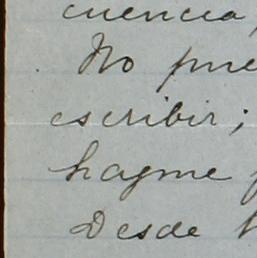 cuencia,
No pue
escribir;
hagme
Desde